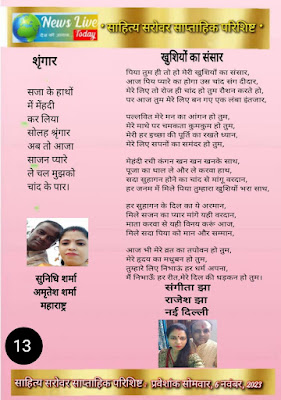 News Live
Today
* साहित्य सरोवर साप्ताहिक परिशिष्ट *
शृंगार
सजा के हाथों
में मेंहदी
कर लिया
सोलह श्रृंगार
अब तो आजा
साजन प्यारे
ले चल मुझको
चांद के पार।
सुनिधि शर्मा
अमृतेश शर्मा
महाराष्ट्र
खुशियों का संसार
पिया तुम ही तो हो मेरी खुशियों का संसार,
आज प्रिय प्यारे का होगा उस चांद संग दीदार,
मेरे लिए तो रोज ही चांद हो तुम रौशन करते हो,
पर आज तुम मेरे लिए बन गए एक लंबा इंतजार,
पल्लवित मेरे मन का आंगन हो तुम,
मेरे माथे पर चमकता कुमकुम हो तुम,
मेरी हर इच्छा की पूर्ति का रखते ध्यान,
मेरे लिए सपनों का समंदर हो तुम,
मेहंदी रची कंगन खन खन खनके साथ,
पूजा का थाल ले और ले करवा हाथ,
सदा सुहागन होने का चांद से मांगू वरदान,
हर जनम में मिले पिया तुम्हारा खुशियों भरा साथ,
हर सुहागन के दिल का ये अरमान,
मिले सजना का प्यार मांगे यही वरदान,
माता करवा से यही विनय करूं आज,
मिले सदा पिया को मान और सम्मान,
आज भी मेरे व्रत का तपोवन हो तुम,
मेरे हृदय का मधुबन हो तुम,
तुम्हारे लिए निभाऊं हर धर्म अपना,
मैं निभाऊँ हर रीत,मेरे दिल की धड़कन हो तुम।
संगीता झा
राजेश झा
नई दिल्ली
13
साहित्य सरोवर साप्ताहिक परिशिष्ट , प्रवेशांक सोमवार, 6 नवंबर, 2023